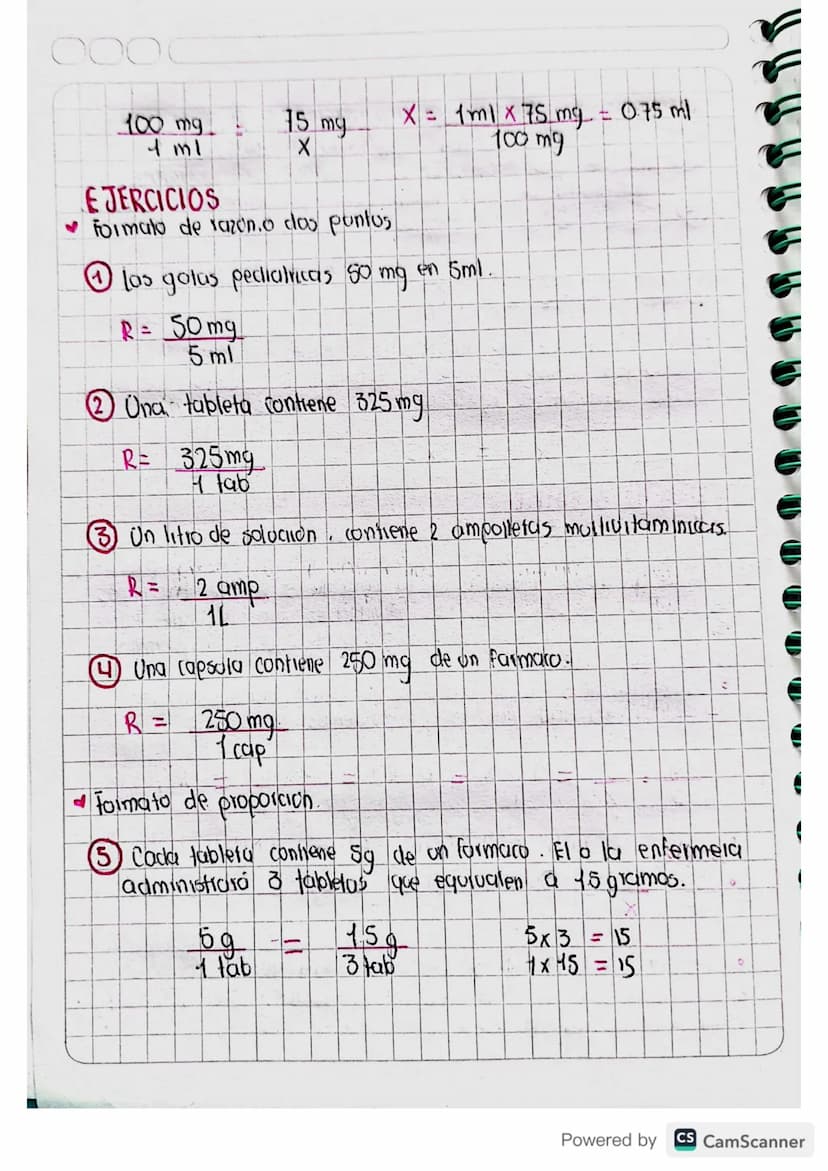 100 mg : 75 mg X = 1ml x 75 mg = 0.75 ml
1 ml X 100 mg
EJERCICIOS
Formato de razón o dos puntos
1 Las gotas pediatricas 50 mg en 5ml.
R = 50 mg
5 ml
2 Una tableta contiene 325 mg
R = 325 mg
1 tab
3 Un litro de solución. contiene 2 ampolletas multivitaminicas.
R = 2 amp
1L
4 Una capsula contiene 250 mg de un farmaco.
R = 250 mg.
1 cap
= = = = :
Formato de proporción.
5 Cada tableta contiene 5g de un farmaco. El o la enfermera
administrará 3 tabletas que equivalen a 15 gramos.
5g = 15g 5 x 3 = 15
1 tab 3 tab 1 x 15 = 15
Powered by CS CamScanner